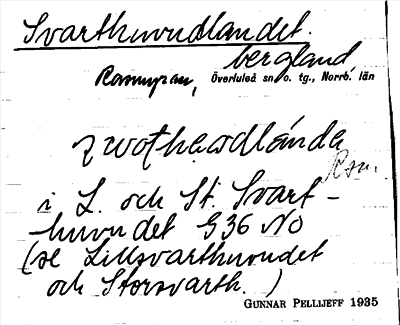 Svarthuvudlandet.
bergland,
Överluleå sn o. tg., Norrb. län
i L. och St. Svart-
huvudet G 36 NO
(se Lillsvarthuvudet
och Storsvarth.)
GUNNAR PELLIJEFF 1935